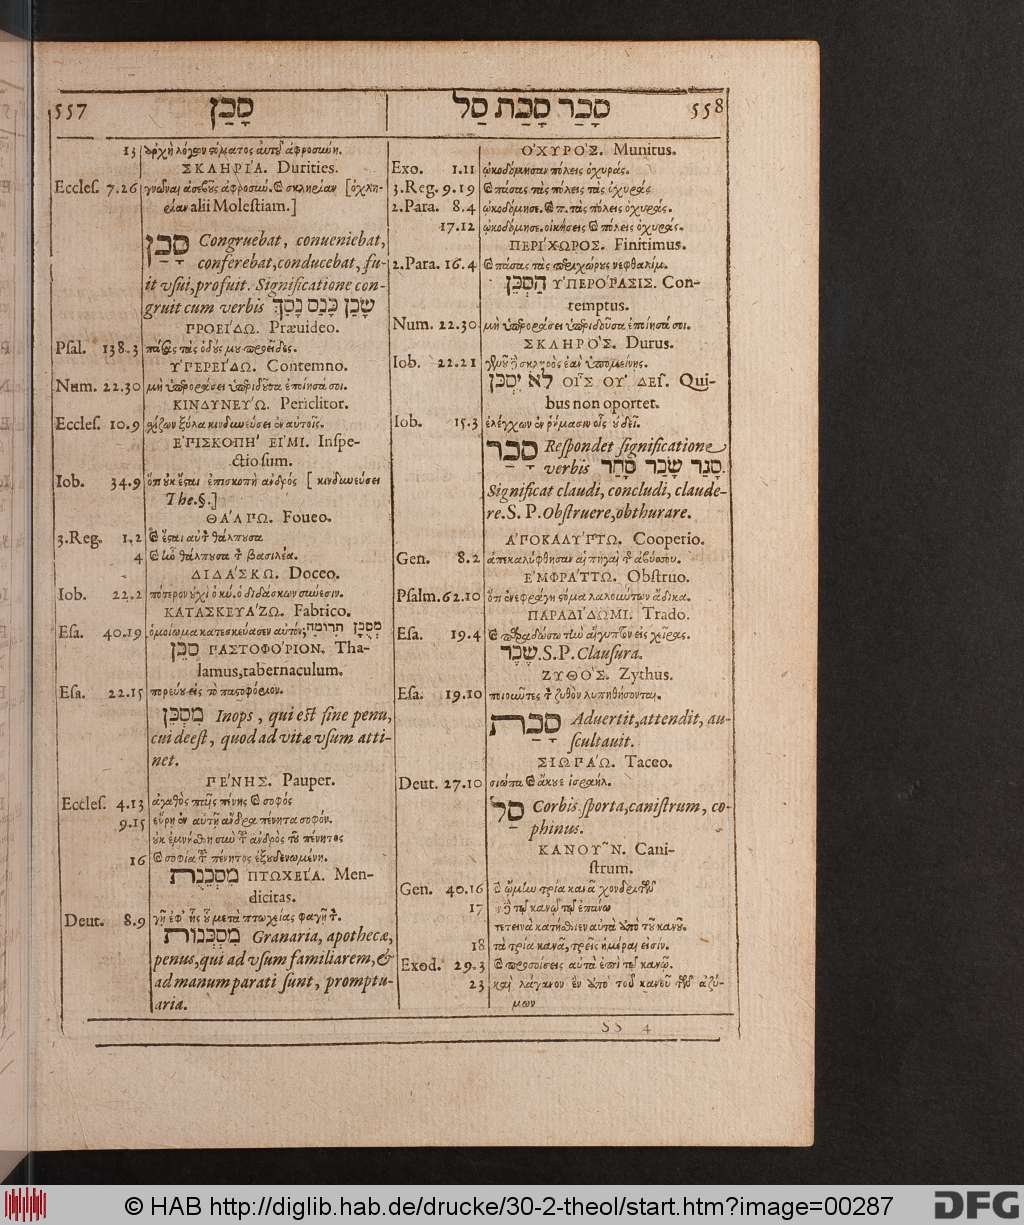 557 סָכַן
13 ἀρχὴ λόγων στόματος αὐτοῦ ἀφροσύνη.
ΣΚΛΗΡΙ´Α. Durities.
Eccles. 7.26 γνῶναι ἀσεβοῦς ἀφροσύνην. καὶ σκληρίαν [ὀχλη-
ρίαν alii Molestiam.]
סָכַן Congruebat, conueniebat,
conferebat, conducebat, fu-
it vsui, profuit. Significatione con-
gruit cum verbis שָׁכַן כָּנַס נָסַךְ
ΠΡΟΕΙ´ΔΩ. Præuideo.
Psal. 138.3 πάσας τὰς ὁδούς μου προεῖδες.
ΥΠΕΡΕΙ´ΔΩ. Contemno.
Num. 22.30 μὴ ὑπεροράσει ὑπεριδοῦσα ἐποίησά σοι.
ΚΙΝΔΥΝΕΥ´Ω. Periclitor.
Eccles. 10.9 σχίζων ξύλα κινδυνεύσει ἐν αὐτοῖς.
ΕΠΙΣΚΟΠΗ´ ΕΙΜΙ. Inspe-
ctio sum.
Iob. 34.9 ὅτι οὐκ ἔσται ἐπισκοπὴ ἀνδρός [κινδυνεύσει
The.§.]
ΘΑ´ΛΠΩ. Foueo.
3.Reg. 1.2 καὶ ἔσται αὐτὸν θάλπουσα
4 καὶ ἦν θάλπουσα τὸν βασιλέα.
ΔΙΔΑ´ΣΚΩ. Doceo.
Iob. 22.2 πότερον οὐχὶ ὁ κύ. ὁ διδάσκων σύνεσιν.
ΚΑΤΑΣΚΕΥΑ´ΖΩ. Fabrico.
Esa. 40.19 ὁμοίωμα κατεσκεύασεν αὐτόν; מְסֻכָּן תְּרוּמָה
סֹכֵן ΠΑΣΤΟΦΟ´ΡΙΟΝ. Tha-
lamus, tabernaculum.
Esa. 22.15 πορεύου εἰς τὸ παστοφόριον.
מִסְכֵּן Inops, qui est sine penu,
cui deest, quod ad vitæ vsum atti-
net.
ΠΕ´ΝΗΣ. Pauper.
Eccles. 4.13 ἀγαθὸς παῖς πένης καὶ σοφός
9.15 εὕρῃ ἐν αὐτῇ ἄνδρα πένητα σοφόν.
οὐκ ἐμνήσθη σὺν τοῦ ἀνδρὸς τοῦ πένητος
16 καὶ σοφία τοῦ πένητος ἐξουδενωμένη.
מִסְכֵּנֻת ΠΤΩΧΕΙ´Α. Men-
dicitas.
Deut. 8.9 γῆ ἐφ' ἧς οὐ μετὰ πτωχείας φαγῇ τὸν.
מִסְכְּנוֹת Granaria, apothecæ,
penus, qui ad vsum familiarem, &
ad manum parati sunt, promptu-
aria.
סָכַר סָכַת סַל 558
ΟΧΥΡΟ´Σ. Munitus.
Exo. 1.11 ᾠκοδόμησαν πόλεις ὀχυράς.
3.Reg. 9.19 καὶ πάσας τὰς πόλεις τὰς ὀχυράς
2.Para. 8.4 ᾠκοδόμησε. καὶ π. τὰς πόλεις ὀχυράς.
17.12 ᾠκοδόμησε. οἰκήσεις καὶ πόλεις ὀχυράς.
ΠΕΡΙ´ΧΩΡΟΣ. Finitimus.
2.Para. 16.4 καὶ πάσας τὰς περιχώρους νεφθαλίμ.
הַסְכֵּן ΥΠΕΡΟ´ΡΑΣΙΣ. Con-
temptus.
Num. 22.30 μὴ ὑπεροράσει ὑπεριδοῦσα ἐποίησά σοι.
ΣΚΛΗΡΟ´Σ. Durus.
Iob. 22.21 γενοῦ δὴ σκληρὸς ἐὰν ὑπομείνῃς.
לֹא יִסְכֹּן ΟΙ῟Σ ΟΥ' ΔΕΙ῀. Qui-
bus non oportet.
Iob. 15.3 ἐλέγχων ἐν ῥήμασιν οἷς οὐ δεῖ.
סָכַר Respondet significatione
verbis סָגַר שָׂכַר סָתַר.
Significat claudi, concludi, claude-
re. S. P. Obstruere, obthurare.
ΑΠΟΚΑΛΥ´ΠΤΩ. Cooperio.
Gen. 8.2 ἀπεκαλύφθησαν αἱ πηγαὶ τῆς ἀβύσσου.
ΕΜΦΡΑ´ΤΤΩ. Obstruo.
Psalm. 62.10 ὅτι ἐνεφράγη στόμα λαλούντων ἄδικα.
ΠΑΡΑΔΙ´ΔΩΜΙ. Trado.
Esa. 19.4 καὶ παραδώσω τὴν αἴγυπτον εἰς χεῖρας.
שֶׂכֶר. S. P. Clausura.
ΖΥΘΟ´Σ. Zythus.
Esa. 19.10 ποιοῦντες τὸν ζύθον λυπηθήσονται.
סָכַת Aduertit, attendit, au-
scultauit.
ΣΙΩΠΑ´Ω. Taceo.
Deut. 27.10 σιώπα καὶ ἄκουε ἰσραήλ.
סַל Corbis, sporta, canistrum, co-
phinus.
ΚΑΝΟΥ῀Ν. Cani-
strum.
Gen. 40.16 καὶ ᾤμην τρία κανᾶ χονδριτῶν
17 ἐν δὲ τῷ κανῷ τῷ ἐπάνω
πετεινὰ κατήσθιεν αὐτὰ ἀπὸ τοῦ κανοῦ.
18 τὰ τρία κανᾶ, τρεῖς ἡμέραι εἰσίν.
Exod. 29.3 καὶ προσοίσεις αὐτὰ ἐπὶ τῷ κανῷ.
23 καὶ λάγανον ἓν ἀπὸ τοῦ κανοῦ τῶν ἀζύ-
μων
SS 4
© HAB http://diglib.hab.de/drucke/30-2-theol/start.htm?image=00287
DFG